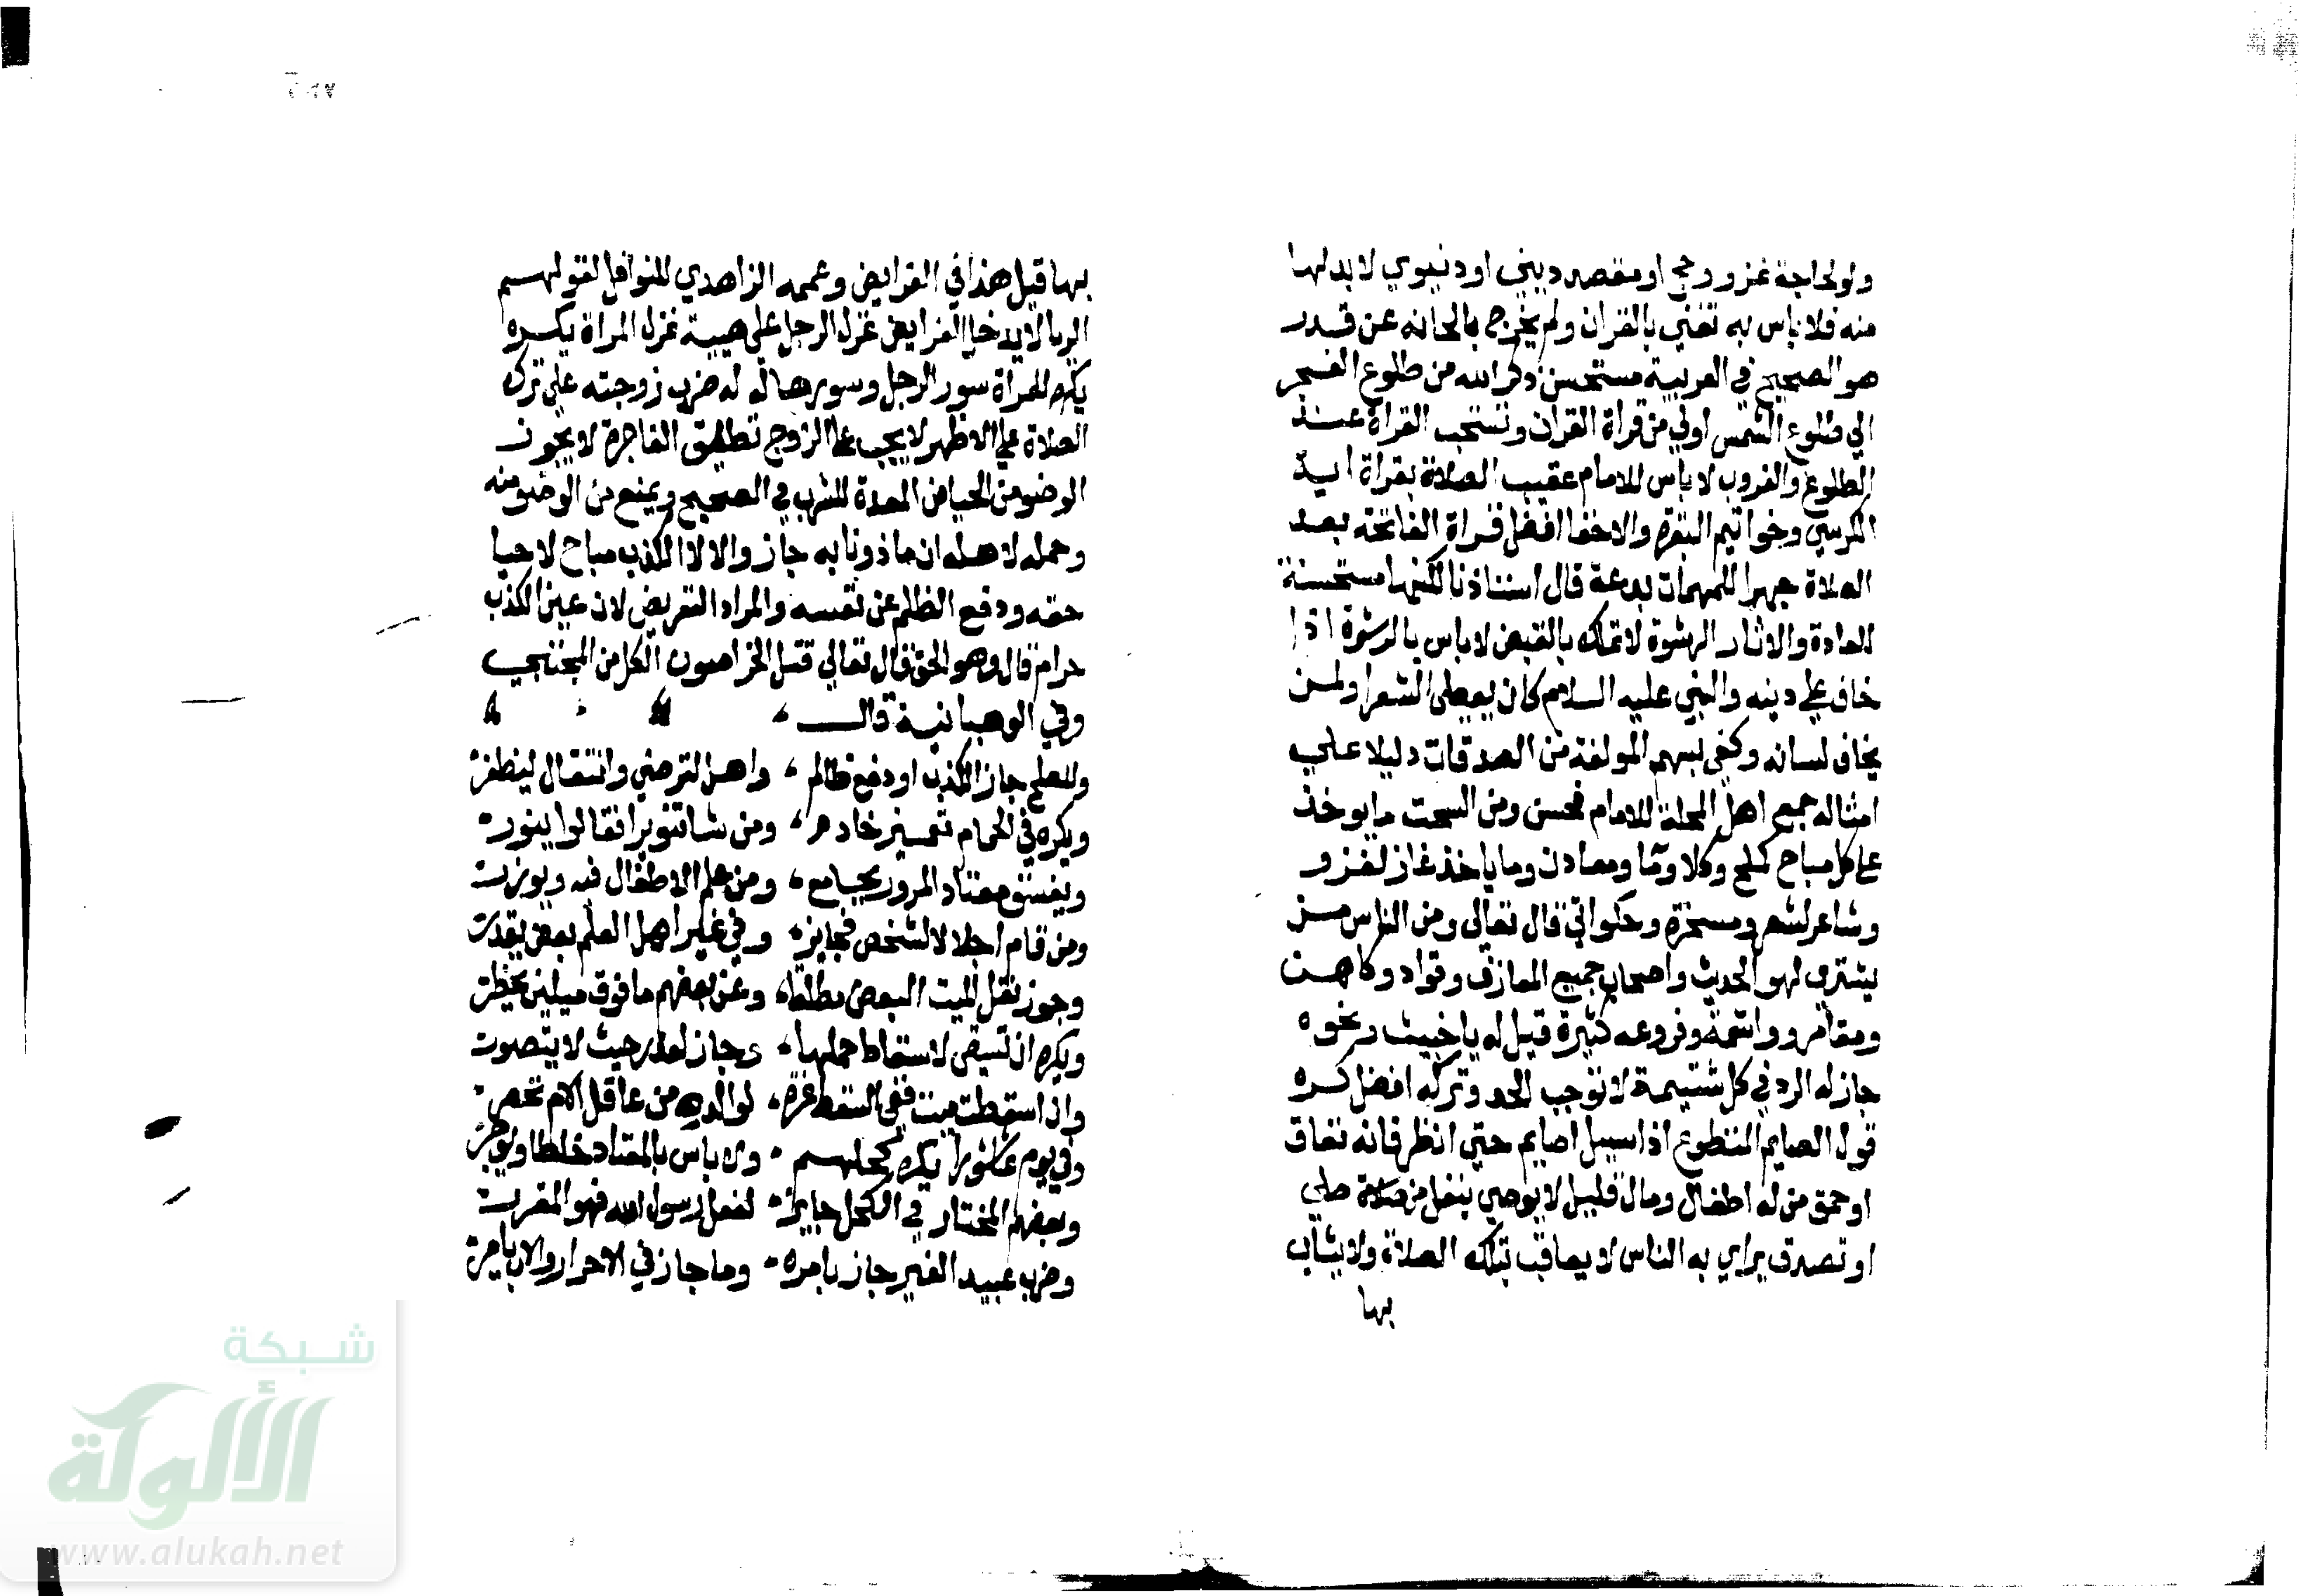 ولو لحاجة غزو وحج او مقصد ديني او دنيوي لا بد لها
منه فلا باس به تغني بالقران ولم يخرج بالحانه عن قدر
هو الصحيح في العربية مستحسن ذكر الله من طلوع الفجر
الي طلوع الشمس اولي من قراة القران وتستحب القراة عند
الطلوع والغروب لا باس للامام عقيب الصلاة بقراة اية
الكرسي وخواتيم البقرة والاخفا افضل قراة الفاتحة بعد
الصلاة جهرا للمهمات بدعة قال استاذنا لكنها مستحسنة
للعادة والاثار الرشوة لا تملك بالقبض لا باس بالرشوة اذا
خاف علي دينه والنبي عليه السلام كان يعطي الشعرا ولمن
يخاف لسانه وكفي بسهم المولفة من الصدقات دليلا علي
امثاله جمع اهل المحلة للامام فحسن ومن السحت ما يوخذ
علي كل مباح كملح وكلا وما ومعادن وما ياخذ غاز لغزو
وشاعر لشعر ومسخرة وحكواتي قال تعالي ومن الناس من
يشتري لهو الحديث واصحاب جميع المعازف وقواد وكاهن
ومقامر وواشمة وفروعه كثيرة قيل له يا خبيث ونحوه
جاز له الرد في كل شتيمة لا توجب الحد وتركه افضل كره
قول الصايم المتطوع اذا سيل اصايم حتي انظر فانه نفاق
او حمق من له اطفال ومال قليل لا يوصي بنفل من صلاة صلي
او تصدق يراي به الناس لا يعاقب بتلك الصلاة ولا يثاب
بها
بها قيل هذا في الفرايض وعممه الزاهدي للنوافل لقولهم
الريا لا يدخل الفرايض غزل الرجل علي هيية غزل المراة يكره
يكره للمراة سور الرجل وسورها له له ضرب زوجته علي ترك
الصلاة علي الاظهر لا يجب علي الزوج تطليق الفاجرة لا يجوز
الوضو من الحياض المعدة للشرب في الصحيح ويمنع من الوضو منه
وحمله لاهله ان ماذونا به جاز والا لا الكذب مباح لاحيا
حقه ودفع الظلم عن نفسه والمراد التعريض لان عين الكذب
حرام قال وهو الحق قال تعالي قتل الخراصون الكل من المجتبي
وفي الوهبانية قال
وللصلح جاز الكذب او دفع ظالم ، واهل لترضي والقتال ليظفروا
ويكره في الحمام تغميز خادم ، ومن شا تنويرا فقالوا ينور
ويفسق معتاد المرور بجامع ، ومن علم الاطفال فيه ويوزر
ومن قام اجلالا لشخص فجايز ، وفي غير اهل العلم بعض يقرر
وجوز نقل الميت البعض مطلقا ، وعن بعضهم ما فوق ميلين يحظر
ويكره ان تسقي لاسقاط حملها ، وجاز لعذر حيث لا يتصور
وان اسقطت ميتا ففي السقط غرة ، لوالده من عاقل الام تحضر
وفي يوم عاشورا يكره كحلهم ، ولا باس بالمعتاد خلطا ويوجر
وبعضهم المختار في الكحل جايز ، لفعل رسول الله فهو المقرر
وضرب عبيد الغير جاز بامره ، وما جاز في الاحرار والاب يامر
شبكة
الألوكة
www.alukah.net